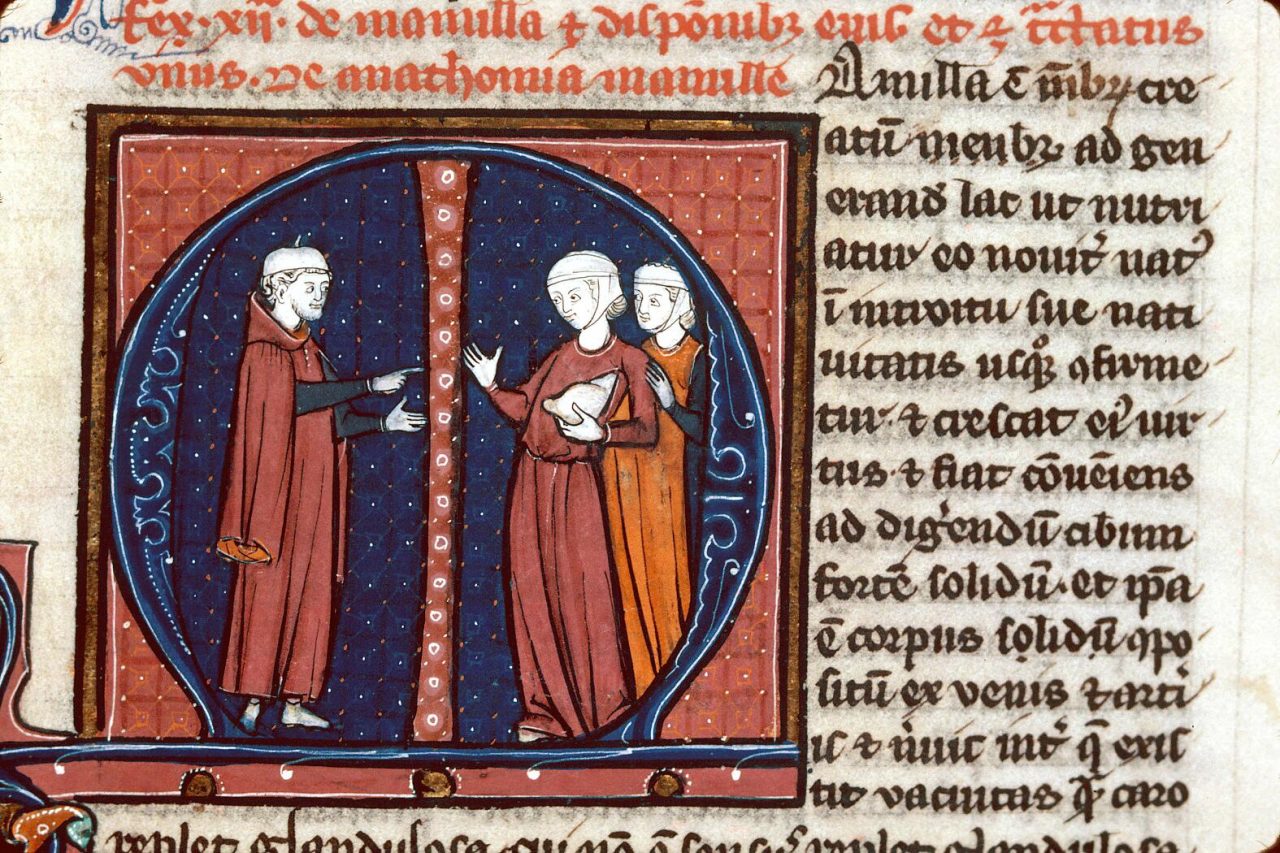 fex· xij· de mamilla ⁊ dispōnibꝫ eius et ē tc̄tatus
vnus. De anathomia mamille
Amilla ē mēbꝝ cre
atū menbꝝ ad gen
erand̄ lac ut nutri
atur eo nouit᷑ nat᷒
ī introitu sue nati
uitatis usqꝫ ꝯfirme
tur· ⁊ crescat ei᷒ uir
tus· ⁊ fiat cōueīens
ad dig̓endū cibum
fortē solidū· et ip̄a
ē corpus solidū ꝯpo
situ̅ ex venis ⁊ arti
is ⁊ n̓uis int᷑ q̄ exis
tit vacuitas q̄ caro
replet glandulosa